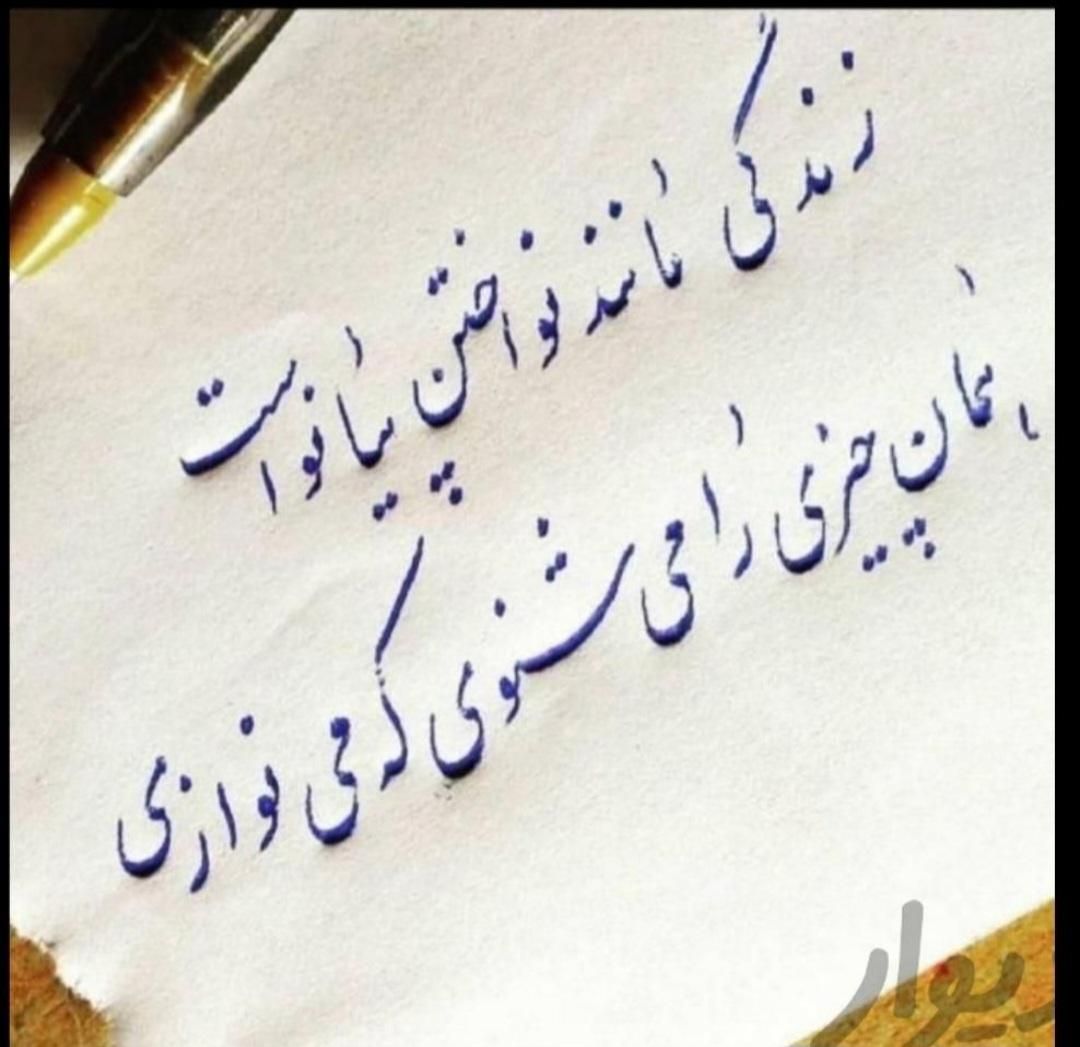 زندگی مانند نواختن پیانو است
همان چیزی را می شنوی که می نوازی
دیوار